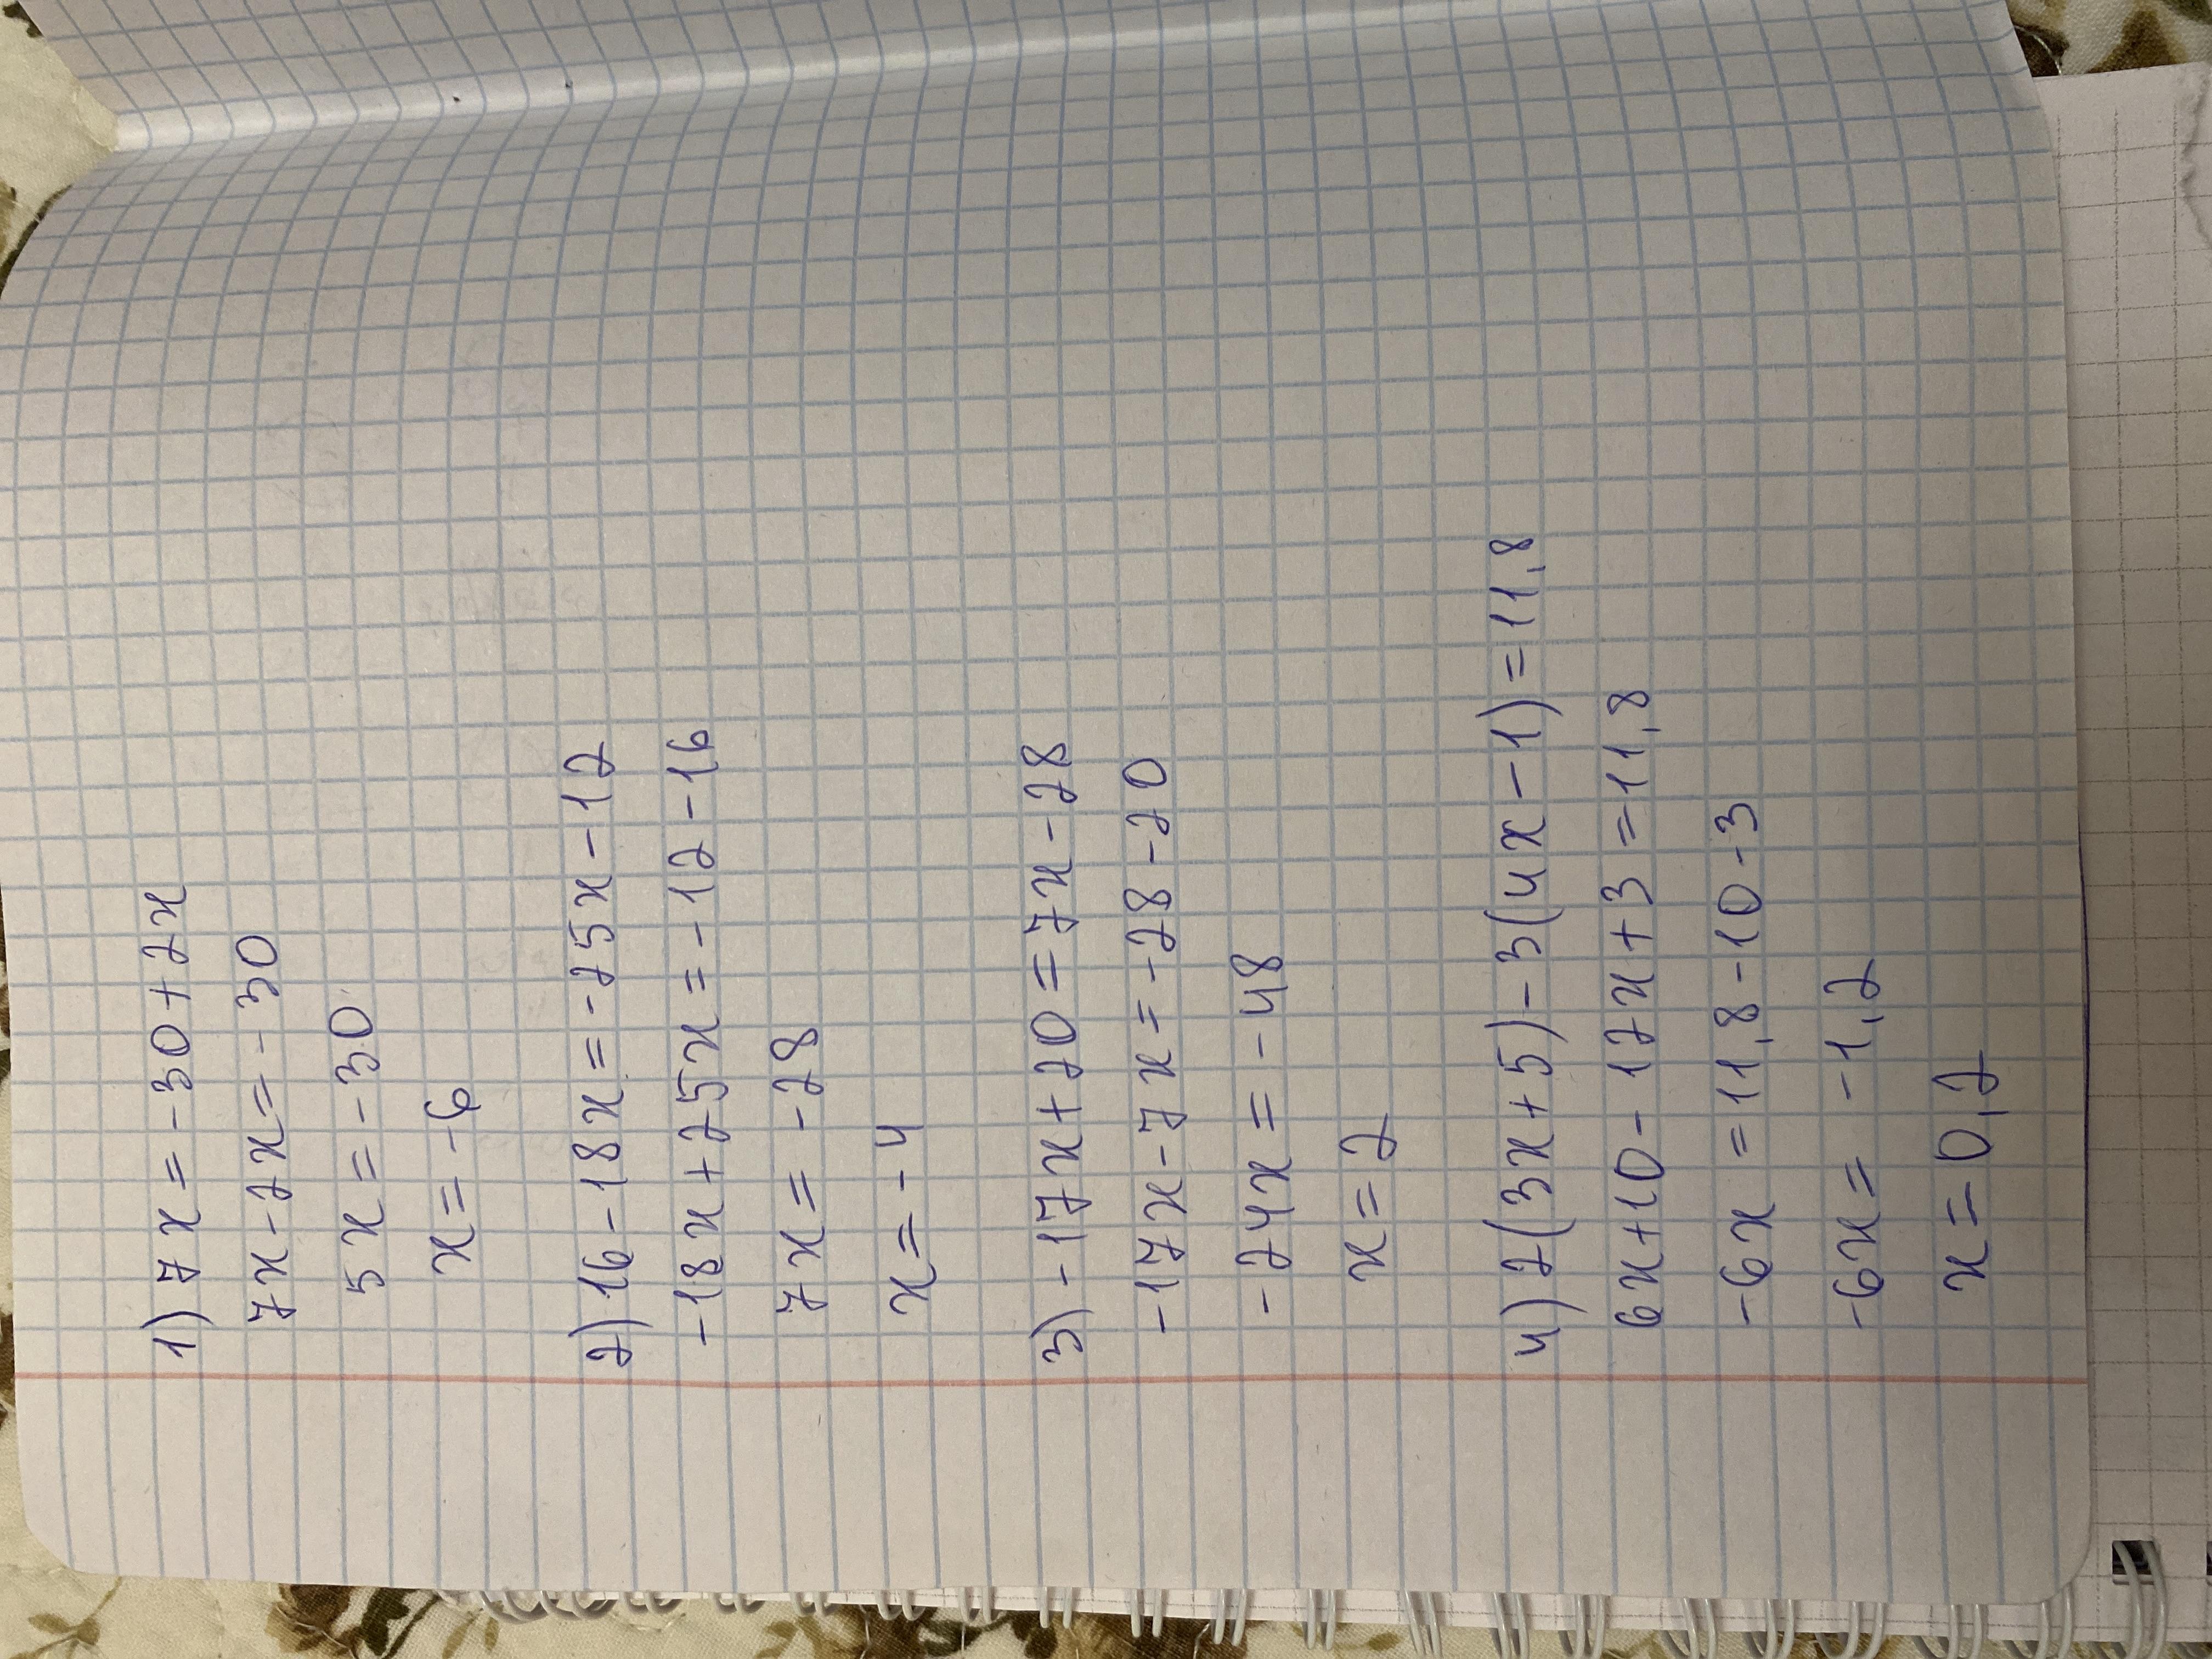 1) 7x = -30 + 2x
7x - 2x = -30
5x = -30
x = -6
2) 16 - 18x = -25x - 12
-18x + 25x = -12 - 16
7x = -28
x = -4
3) -17x + 20 = 7x - 28
-17x - 7x = -28 - 20
-24x = -48
x = 2
4) 2(3x + 5) - 3(4x - 1) = 11,8
6x + 10 - 12x + 3 = 11,8
-6x = 11,8 - 10 - 3
-6x = -1,2
x = 0,2